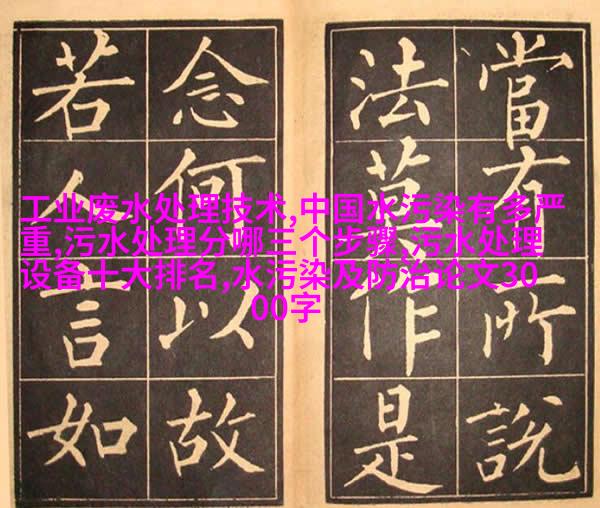 工业废水处理技术,中国水污染有多严
重,污水处理分哪三个步骤,污水处理
设备十大排名,水污染及防治论文30
00字
當有所說
法莫作是
念何以故
若人言如